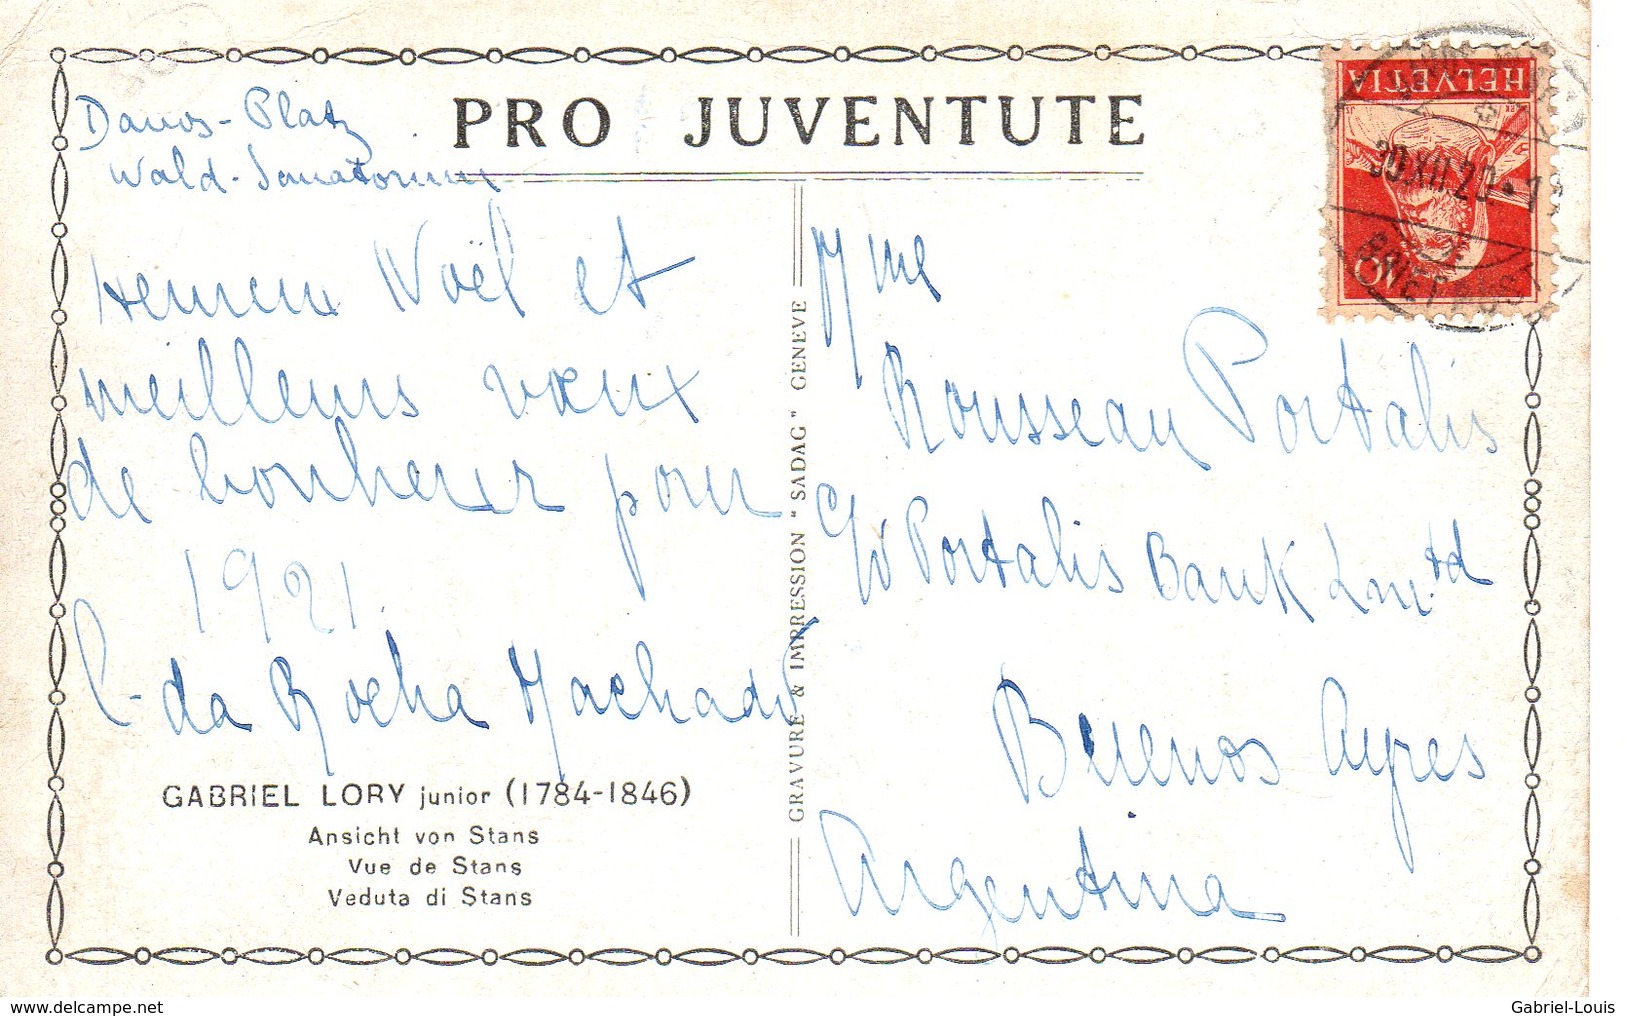 PRO JUVENTUTE
Davos-Platz
Wald-Sanatorium
Heureux Noël et
meilleurs vœux
de bonheur pour
1921.
C. da Rocha Machado
GABRIEL LORY junior (1784-1846)
Ansicht von Stans
Vue de Stans
Veduta di Stans
GRAVURE & IMPRESSION "SADAG" GENEVE
HELVETIA
10
20.XII.20
Mme
Rousseau Portalis
c/o Portalis Bank Lmtd
Buenos Ayres
Argentina
delcampe.net
Gabriel-Louis